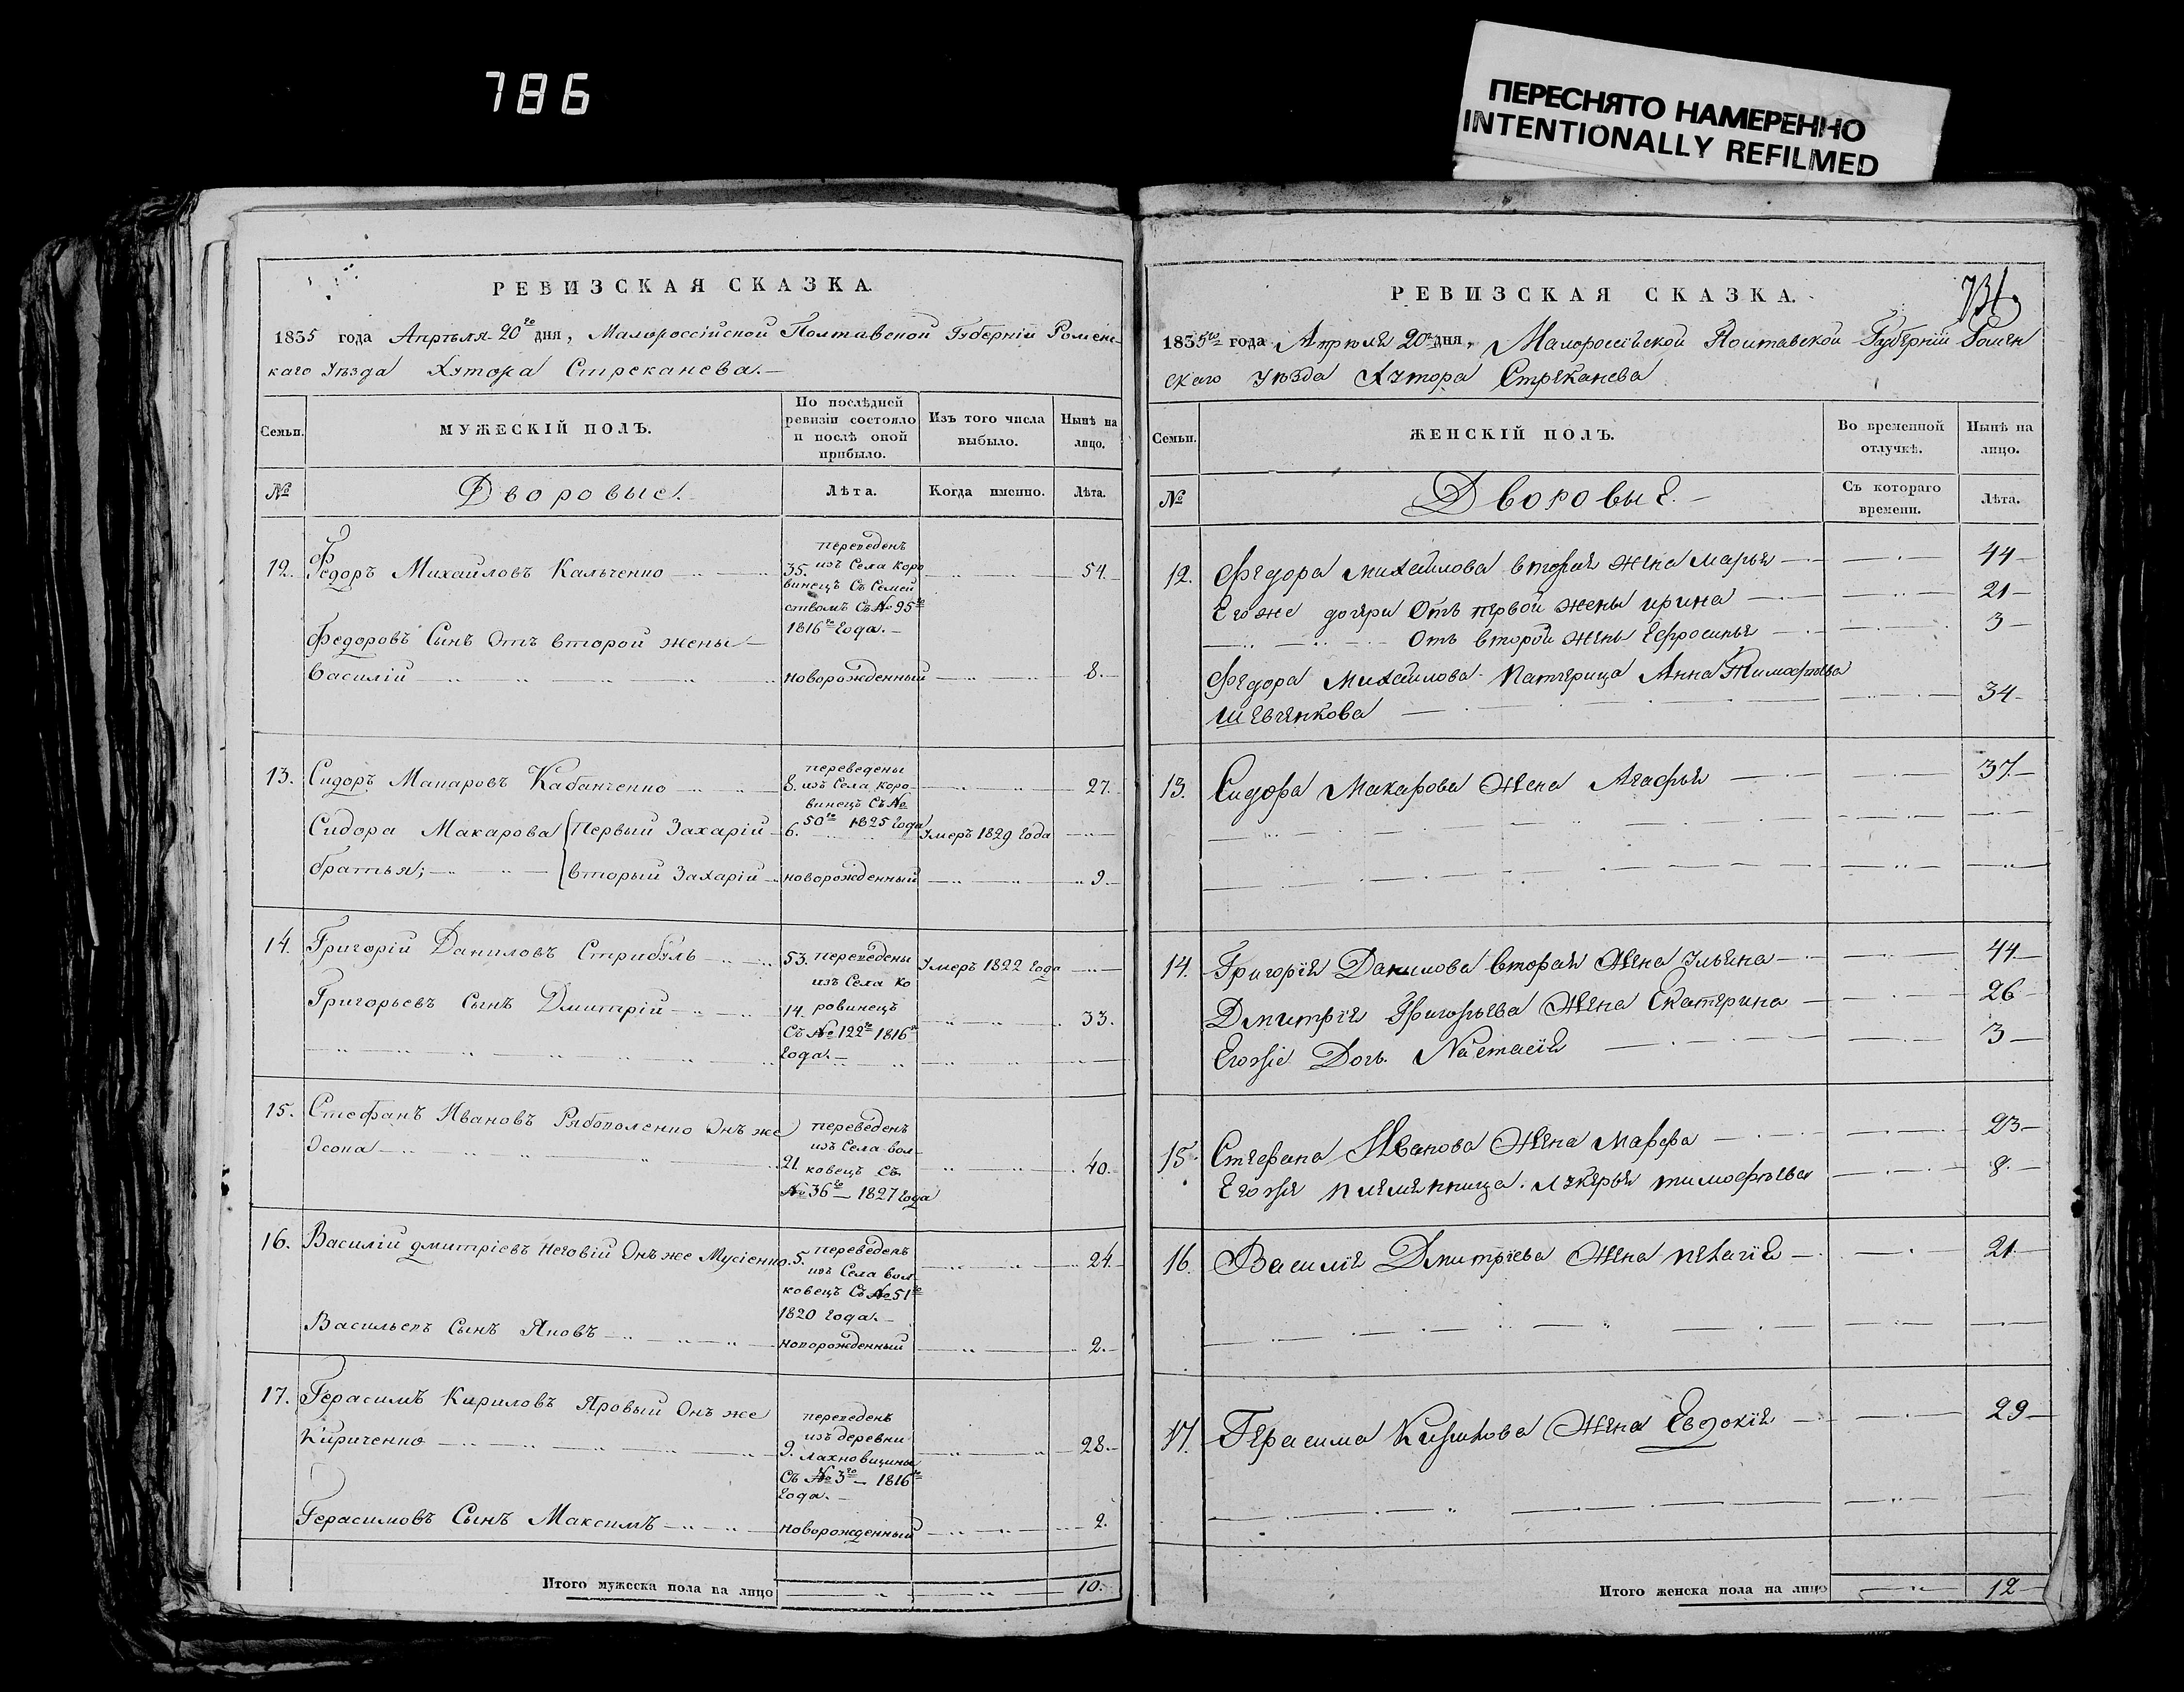 786
ПЕРЕСНЯТО НАМЕРЕННО
INTENTIONALLY REFILMED
РЕВИЗСКАЯ СКАЗКА.
1835 года Апрѣля 20го дня, Малороссійской Полтавской Губерніи Роменс-
каго Уѣзда Хутора Стреканева.
Семьи.
МУЖЕСКІЙ ПОЛЪ.
По послѣдней
ревизіи состояло
и послѣ оной
прибыло.
Изъ того числа
выбыло.
Нынѣ на
лицо.
№
Дворовые.
Лѣта.
Когда именно.
Лѣта.
12. Федоръ Михайловъ Кальченко
35. переведенъ
изъ Села Коро
винецъ Съ Семей
ствомъ Съ № 95го
1816го Года.
54.
Федоровъ Сынъ Отъ второй жены
Василій новорожденный 8.
13. Сидоръ Макаровъ Кабанченко
8. переведены
изъ Села Коро-
винецъ Съ №
50го 1825 Года
27.
Сидора Макарова Первый Захарій 6. Умеръ 1829 Года
братья; вторый Захарій новорожденный 9.
14. Григорій Даниловъ Стрибуль 53. переведены Умеръ 1822 Года
изъ Села Ко
Григорьевъ Сынъ Дмитрій 14. ровинецъ 33.
Съ № 122го 1816го
Года.
15. Стефанъ Ивановъ Рябополенко Онъ же переведенъ
изъ Села вол-
21. ковецъ Съ 40.
№ 36го 1827 Года
16. Василій дмитріевъ Неговій Онъ же Мусіенко. 5. переведенъ 24.
изъ Села вол-
ковецъ Съ № 51го
1820 Года.
Васильевъ Сынъ Яковъ новорожденный 2.
17. Герасимъ Кириловъ Яровый Онъ же переведенъ
Кириченко изъ деревни 28.
9. Лахновщины
Съ № 3го 1816го
Года.
Герасимовъ Сынъ Максимъ новорожденный 2.
Итого мужеска пола на лицо 10.
РЕВИЗСКАЯ СКАЗКА.
731
1835го года Апреля 20го дня, Малоросійской Полтавской Губерніи Ромен
скаго Уѣзда Хутора Стреканева
Семьи.
ЖЕНСКІЙ ПОЛЪ.
Во временной
отлучкѣ.
Нынѣ на
лицо.
№
Дворовые.
Съ котораго
времени.
Лѣта.
12. Федора Михайлова вторая жена марья 44
Его же дочери Отъ первой жены ирина 21
Отъ второй жены Ефросинья 3
Федора Михайлова Патчерица Анна Тимофѣева
шевченкова 34
13. Сидора Макарова Жена Агафья 37
14. Григорія Данилова вторая Жена Ульяна 44
Дмитрія Григорьева Жена Екатерина 26
Егоже Дочь Настасія 3
15. Стефана Иванова Жена марфа 23
Егоже племянница лукерья тимофѣева 8
16. Василія Дмитріева Жена пелагія 21
17. Герасима Кирилова Жена Евдокія 29
Итого женска пола на лицо 12